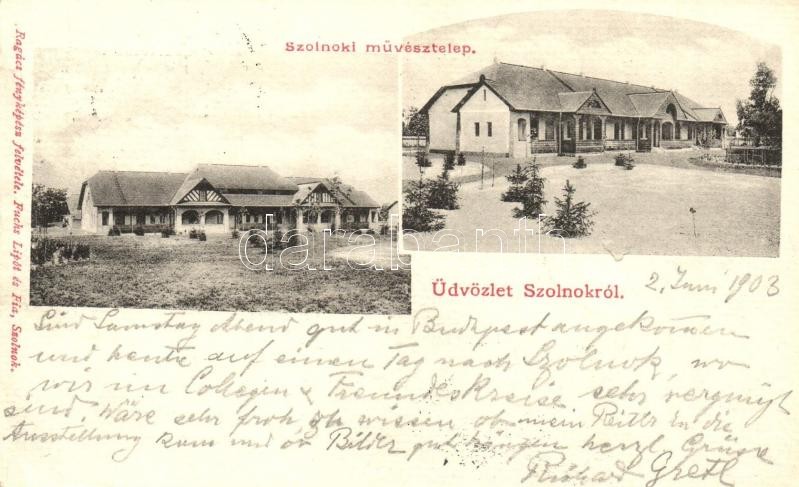 Szolnoki művésztelep.
Ragács fényképész felvétele. Fuchs Lipót és Fia, Szolnok.
darabanth
Üdvözlet Szolnokról.
2. Juni 1903
Sind Samstag Abend gut in Budapest angekommen
und heute auf einen Tag nach Szolnok, wo
wir im Collegen & Freundeskreise sehr vergnügt
sind. Wäre sehr froh, zu wissen ob mein in die
Ausstellung kam und ob Bilder gut hängen herzl. Grüsse
Richard Gretl